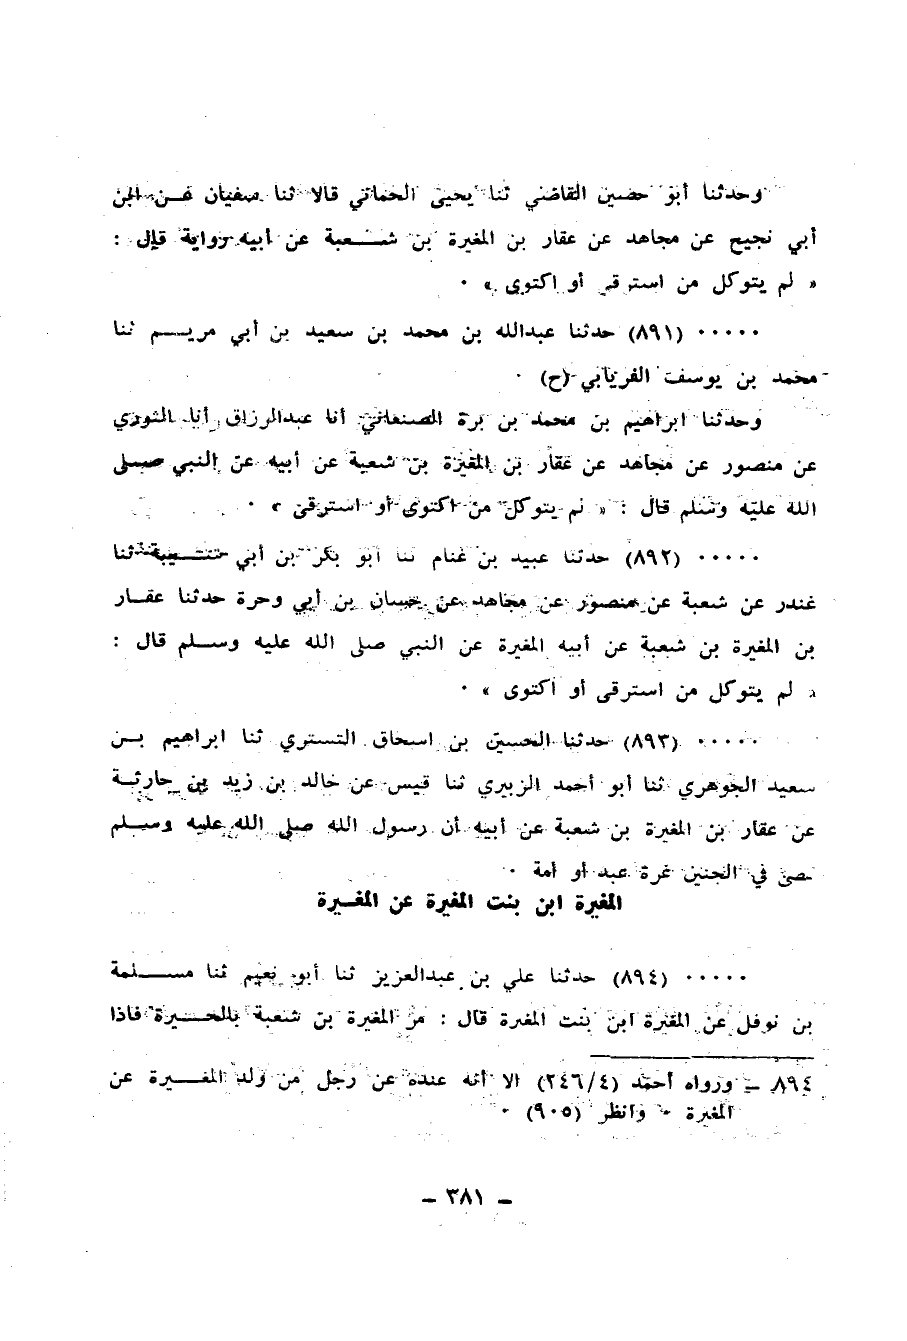 وحدثنا أبو حصين القاضي ثنا يحيى الحماني قالا ثنا سفيان عن ابن
أبي نجيح عن مجاهد عن عقار بن المغيرة بن شعبة عن أبيه رواية قال :
« لم يتوكل من استرقى أو اكتوى » ·
····· (٨٩١) حدثنا عبدالله بن محمد بن سعيد بن أبي مريم ثنا
محمد بن يوسف الفريابي (ح) ·
وحدثنا ابراهيم بن محمد بن برة الصنعاني أنا عبدالرزاق أنا الثوري
عن منصور عن مجاهد عن عقار بن المغيرة بن شعبة عن أبيه عن النبي صلى
الله عليه وسلم قال : « لم يتوكل من اكتوى أو استرقى » ·
····· (٨٩٢) حدثنا عبيد بن غنام ثنا أبو بكر بن أبي شيبة ثنا
غندر عن شعبة عن منصور عن مجاهد عن حسان بن أبي وحرة حدثنا عقار
بن المغيرة بن شعبة عن أبيه المغيرة عن النبي صلى الله عليه وسلم قال :
« لم يتوكل من استرقى أو اكتوى » ·
····· (٨٩٣) حدثنا الحسين بن اسحاق التستري ثنا ابراهيم بن
سعيد الجوهري ثنا أبو أحمد الزبيري ثنا قيس عن خالد بن زيد بن حارثة
عن عقار بن المغيرة بن شعبة عن أبيه أن رسول الله صلى الله عليه وسلم
في الجنين غرة عبد أو أمة ·
المغيرة ابن بنت المغيرة عن المغيرة
····· (٨٩٤) حدثنا علي بن عبدالعزيز ثنا أبو نعيم ثنا مسلمة
بن نوفل عن المغيرة ابن بنت المغيرة قال : مر المغيرة بن شعبة بالحيرة فاذا
٨٩٤ ـ ورواه أحمد (٢٤٦/٤) الا أنه عنده عن رجل من ولد المغيرة عن
المغيرة · وانظر (٩٠٥) ·
ـ ٣٨١ ـ